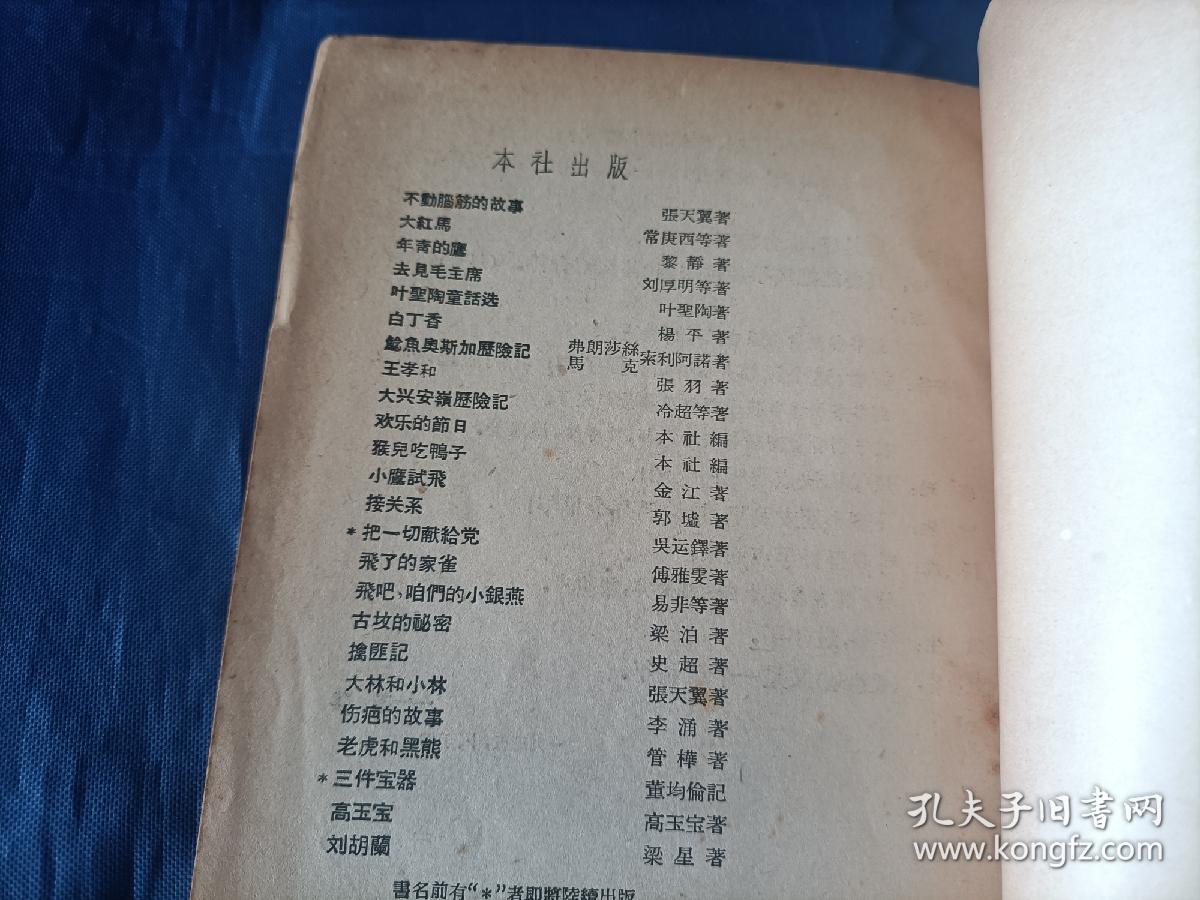 本社出版
不動腦筋的故事 張天翼著
大紅馬 常庚西等著
年青的鷹 黎靜著
去見毛主席 刘厚明等著
叶聖陶童話选 叶聖陶著
白丁香 楊平著
鯰魚奥斯加歷險記 弗朗莎絲 馬克 索利阿諾著
王孝和 張羽著
大兴安嶺歷險記 冷超等著
欢乐的節日 本社編
猴兒吃鴨子 本社編
小鷹試飛 金江著
接关系 郭墟著
*把一切献給党 吳运鐸著
飛了的家雀 傅雅雯著
飛吧,咱們的小銀燕 易非等著
古坟的祕密 梁泊著
擒匪記 史超著
大林和小林 張天翼著
伤疤的故事 李涌著
老虎和黑熊 管樺著
*三件宝器 董均倫記
高玉宝 高玉宝著
刘胡蘭 梁星著
書名前有“*”者即將陸續出版
孔夫子旧書网
www.kongfz.com